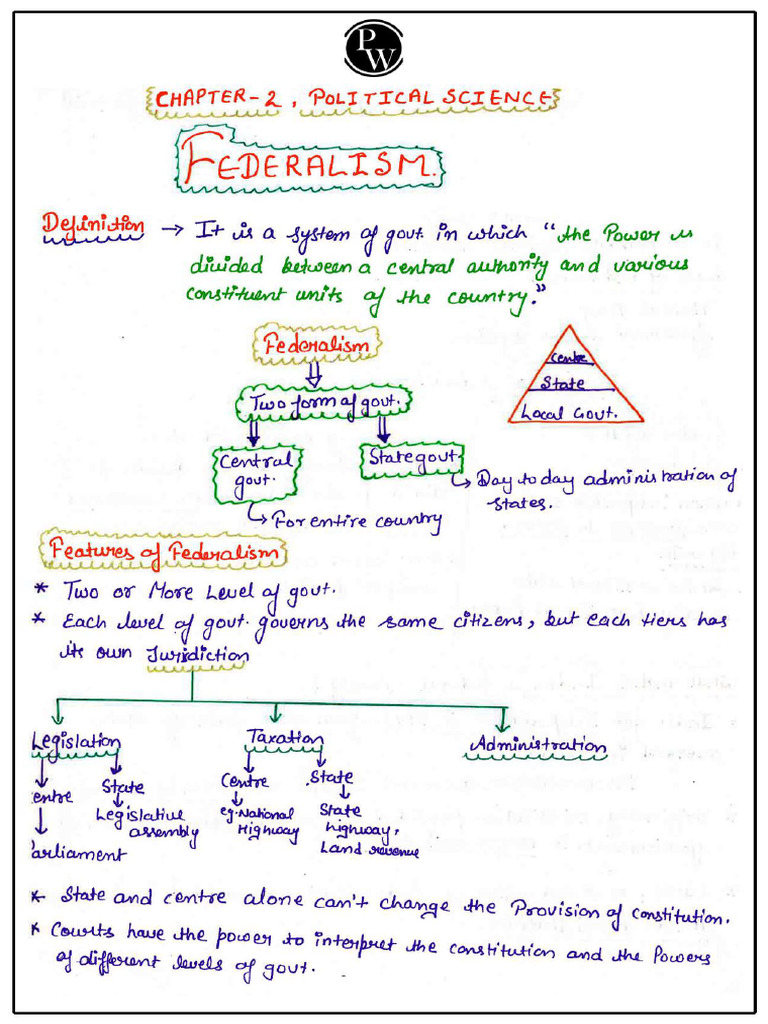 PW
CHAPTER-2, POLITICAL SCIENCE
FEDERALISM.
Definition → It is a system of govt. in which "the Power is
divided between a central authority and various
constituent units of the country."
Federalism
Two form of govt.
Central
govt.
State govt.
Centre
State
Local Govt.
↳ Day to day administration of
states.
↳ For entire country
Features of Federalism
* Two or More Level of govt.
* Each level of govt. governs the same citizens, but each tiers has
its own Jurisdiction
Legislation
Taxation
Administration
entre
State
Centre
State
Legislative
assembly
eg. National
Highway
State
highway,
Land revenue
arliament
* State and centre alone can't change the Provision of constitution.
* Courts have the power to interpret the constitution and the Powers
of different levels of govt.